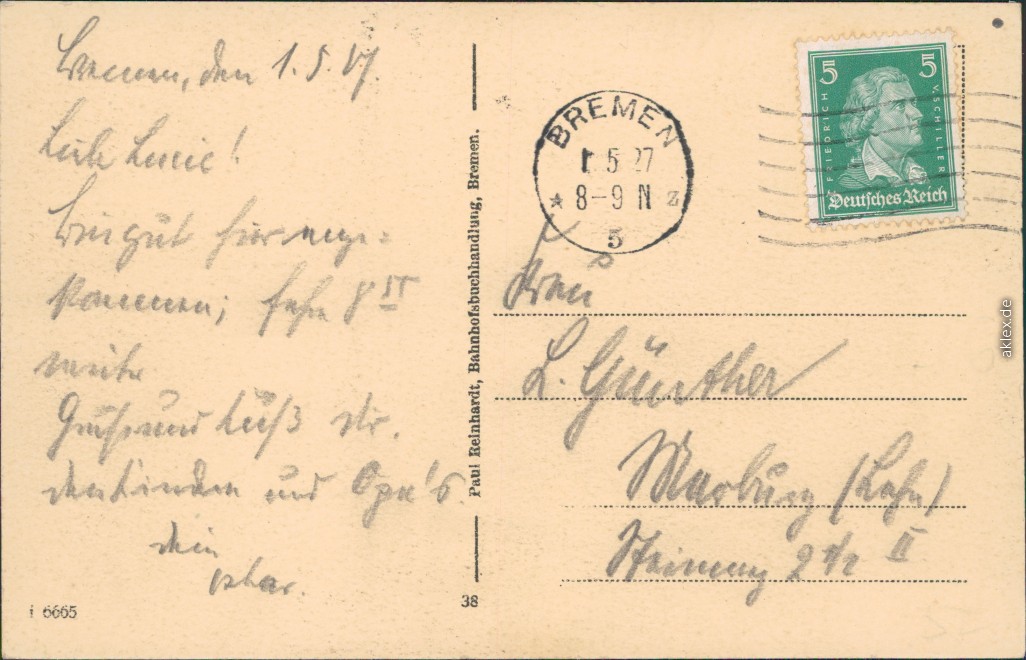 Bremen, den 1.5.27.
Liebe Lucie!
Bin gut hier ange=
kommen; fahre 8
weiter
Gruß und Kuß dir,
den Kindern und Opa's.
Dein
Oskar.
i 6665
38
Paul Reinhardt, Bahnhofsbuchhandlung, Bremen.
BREMEN
1.5.27
8-9 N
* z
5
5 5
FRIEDRICH V. SCHILLER
Deutsches Reich
Frau
L. Günther
Marburg (Lahn)
Steinweg 2 1/2 II
aklex.de